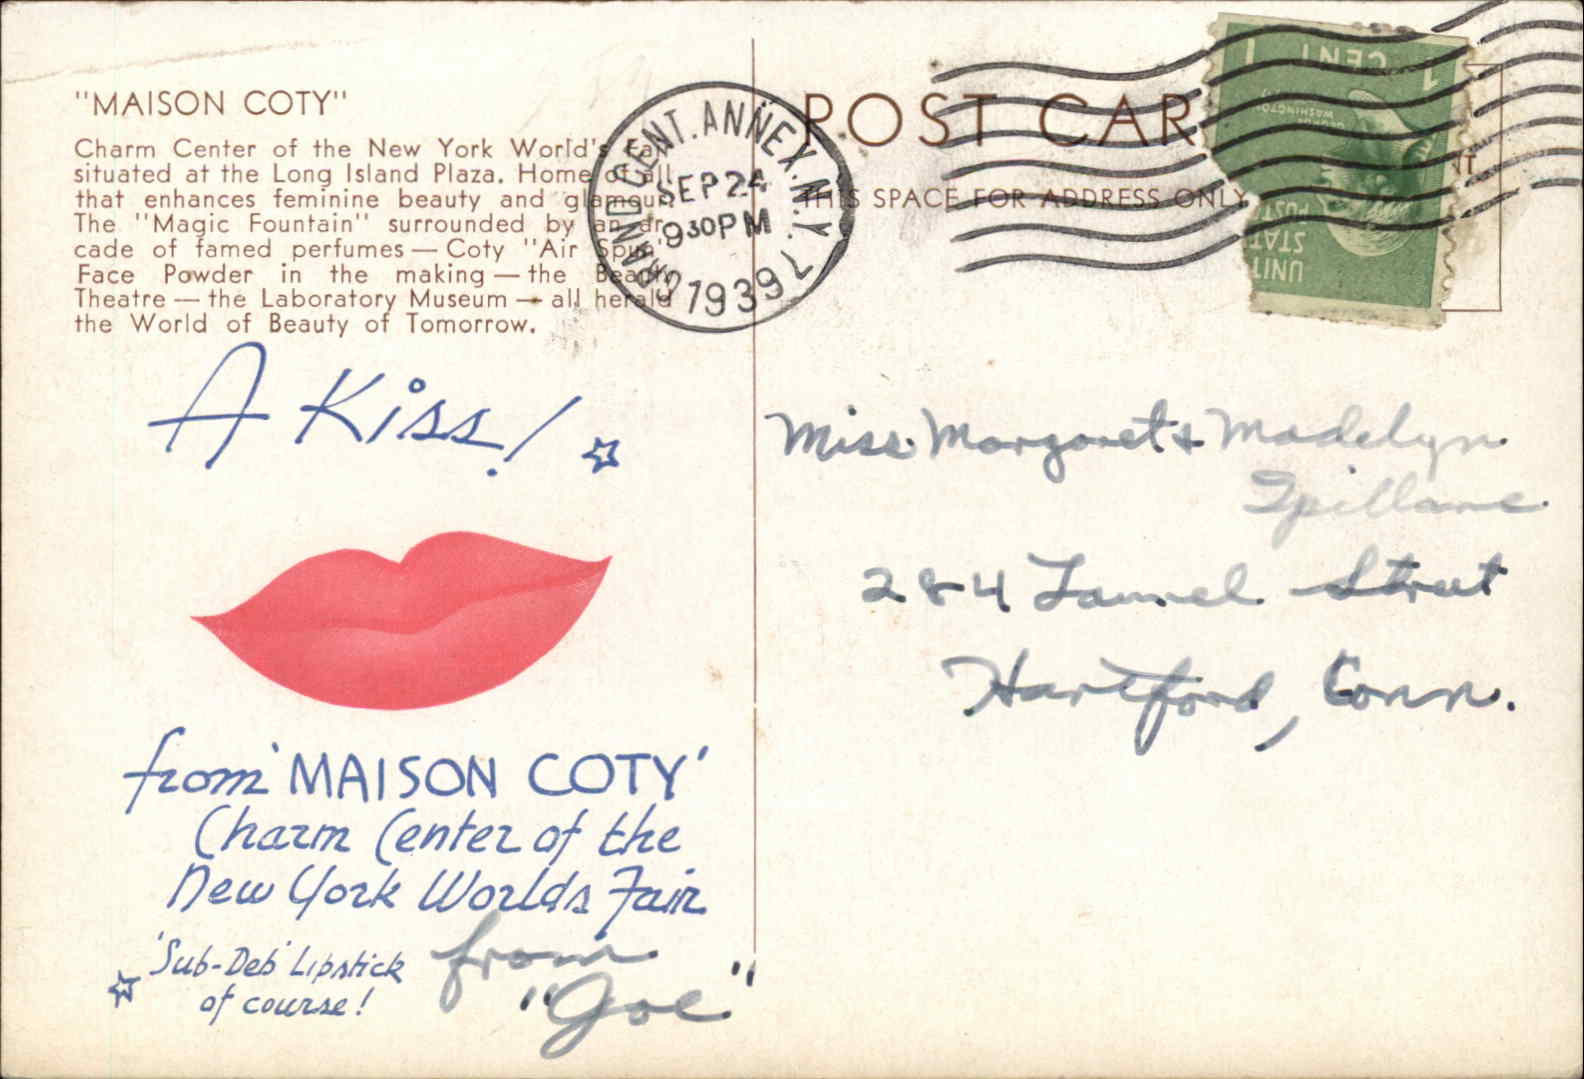 "MAISON COTY"
Charm Center of the New York World's Fair
situated at the Long Island Plaza. Home of all
that enhances feminine beauty and glamour.
The "Magic Fountain" surrounded by an ar-
cade of famed perfumes — Coty "Air Spun"
Face Powder in the making — the Beauty
Theatre — the Laboratory Museum — all herald
the World of Beauty of Tomorrow.
A Kiss!
from 'MAISON COTY'
Charm Center of the
New York Worlds Fair
'Sub-Deb' Lipstick
of course!
from
"Joe"
GRAND CENT. ANNEX. N.Y. 7
SEP 24
9 30 PM
1939
POST CAR
THIS SPACE FOR ADDRESS ONLY
1 CENT 1
WASHINGTON
UNIT STAT
POST
Miss. Margaret & Madelyn
Spillane.
284 Laurel Street
Hartford, Conn.